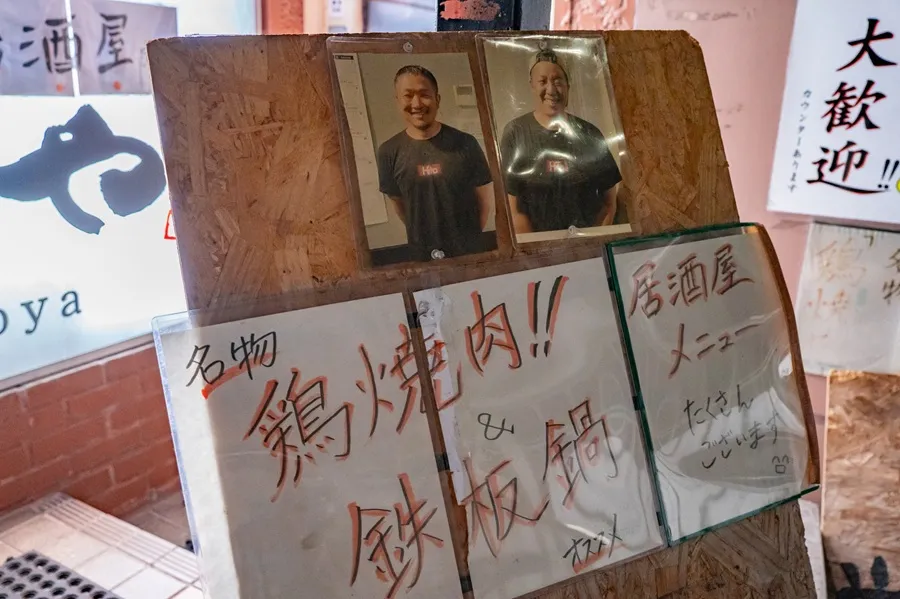 居酒屋
や
oya
大歓迎!!
カウンターあります
Hito
名物
鶏焼肉!!
&
鉄板鍋
オススメ
居酒屋
メニュー
たくさん
ございます
名物
鶏焼